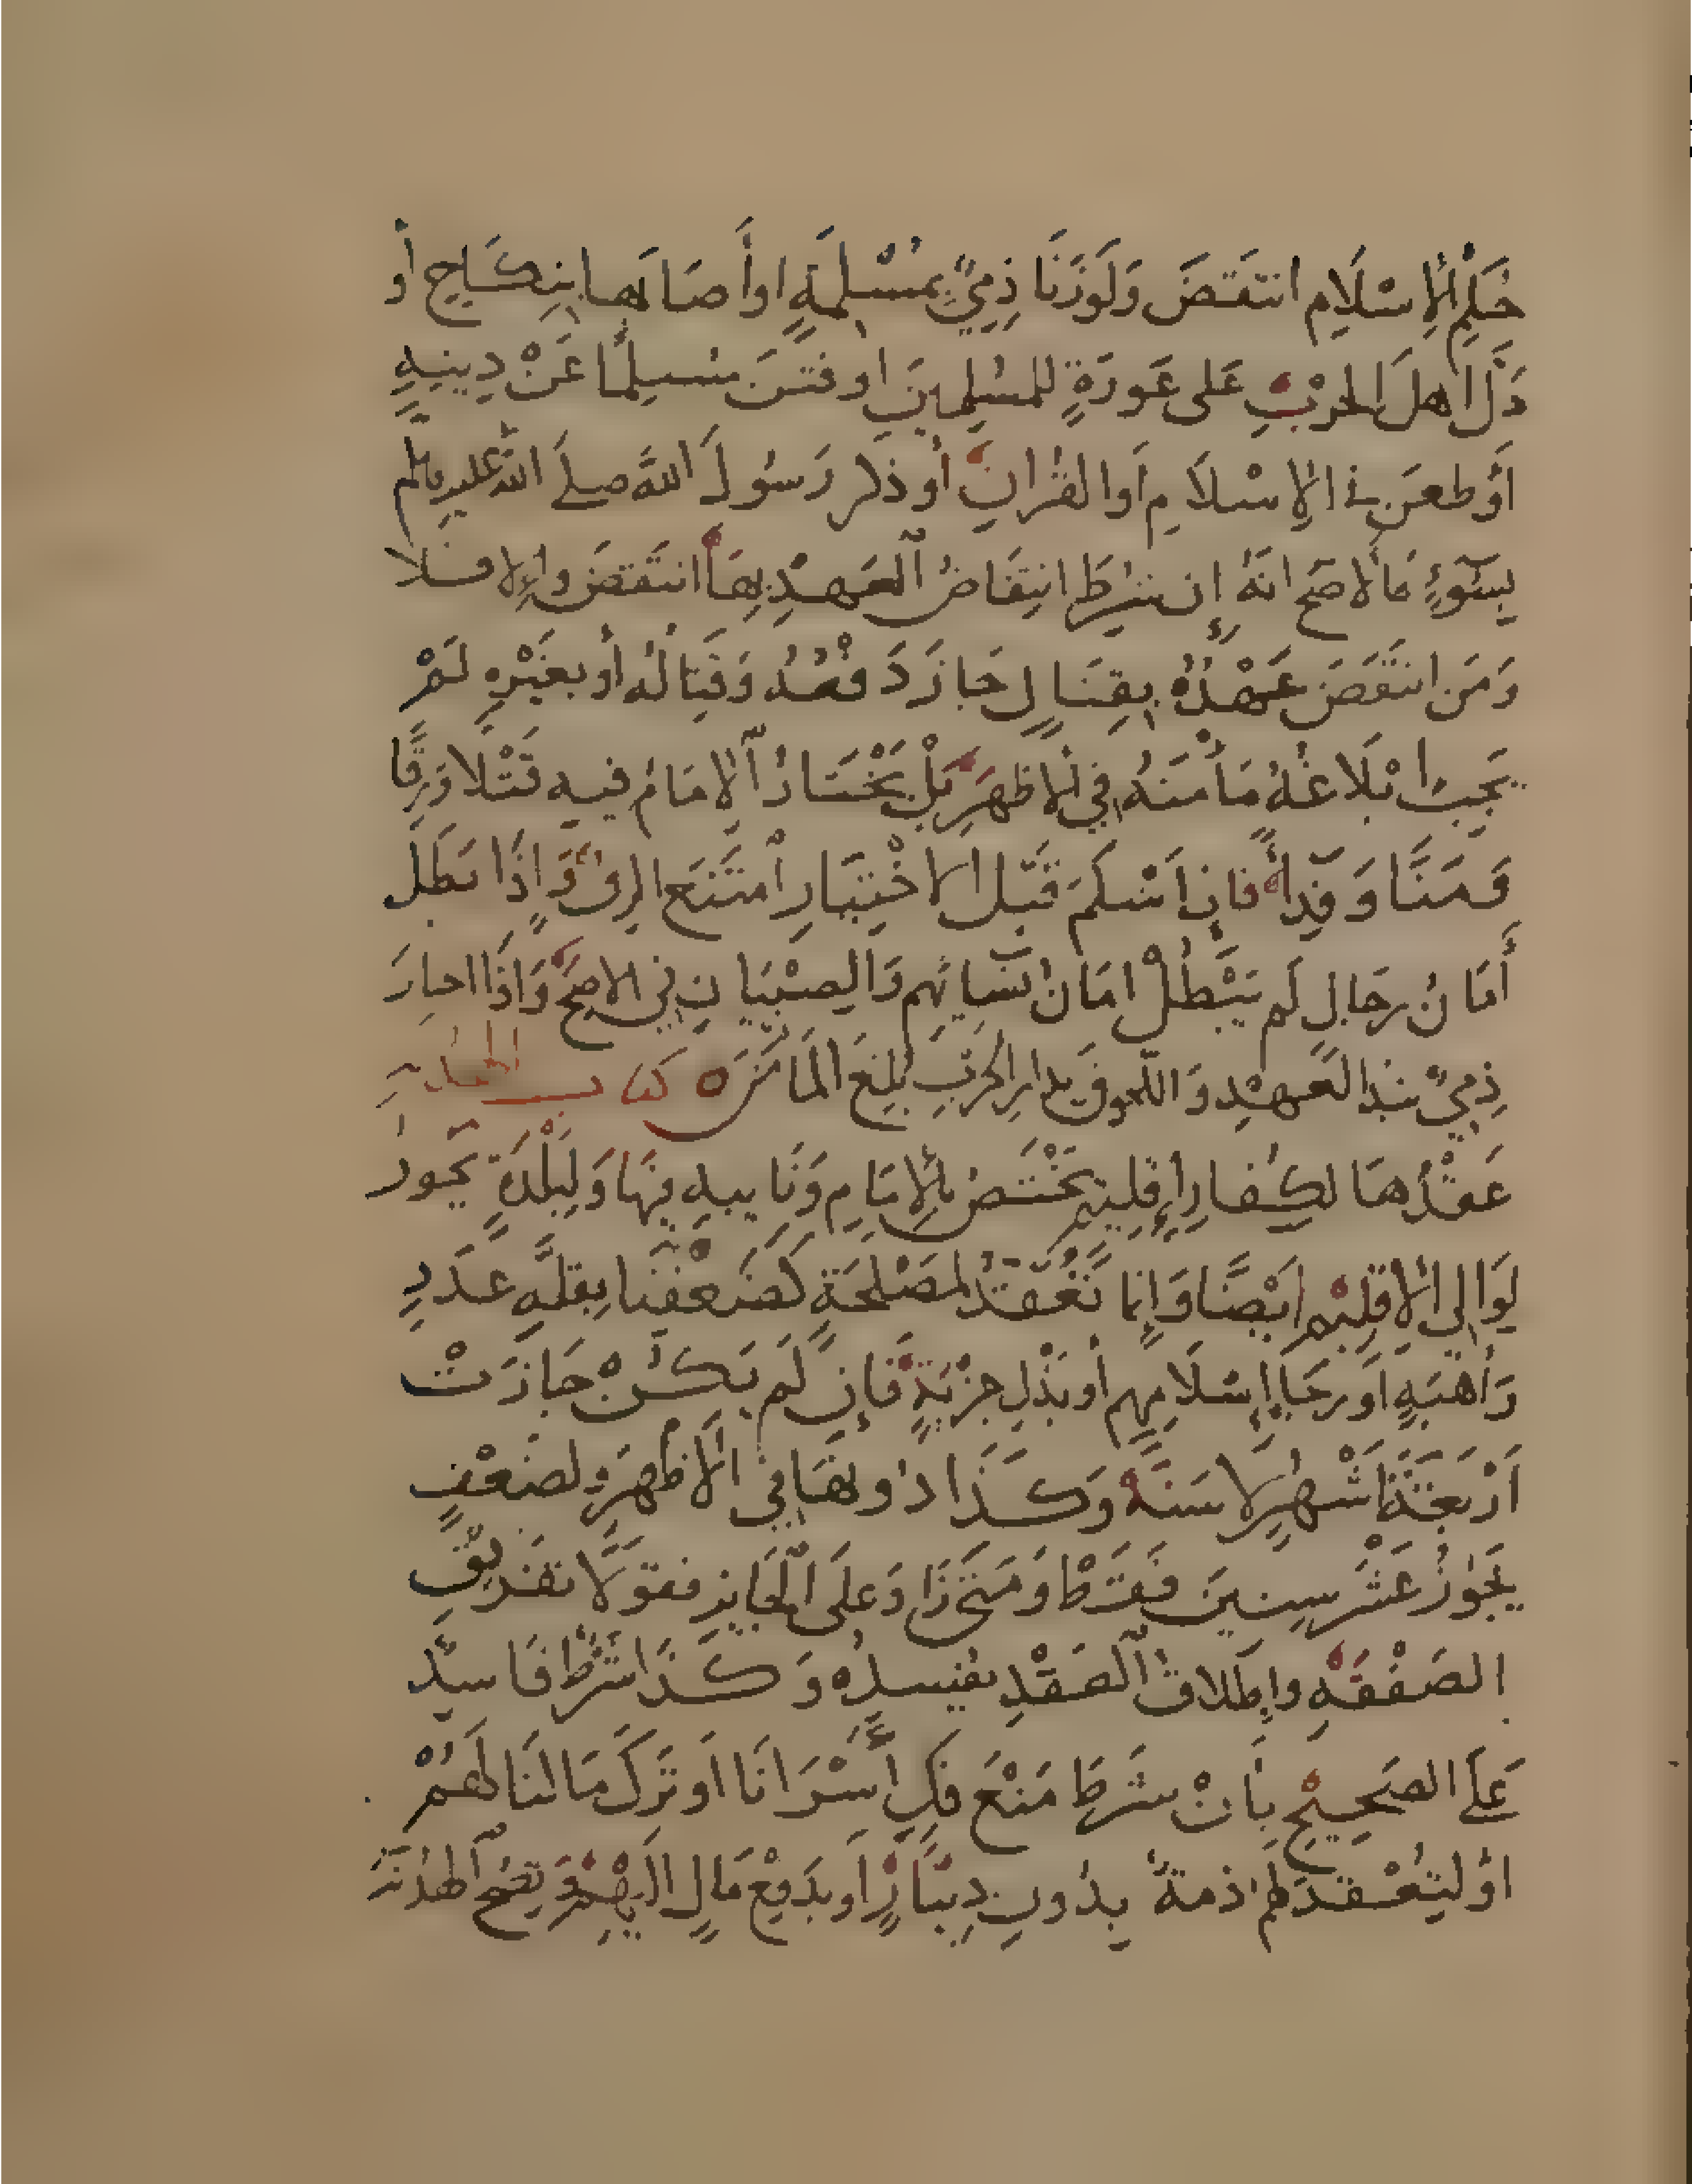 حُكْمِ الإِسْلَامِ انتَقَضَ وَلَوْ زَنَا ذِمِيٌّ بِمُسْلِمَةٍ اوأَصَابَهَا بِنِكَاحٍ أَو
دَلَّ اهلَ الحرْبِ عَلى عَورَةٍ للمسْلِمِينَ او فَتَنَ مُسْلِمًا عَنْ دِينِهِ
أَوْ طعَنَ في الإِسْلَامِ أَوالقُرْانِ أَو ذكر رَسُولَ اللهَِّ صلى الله عليه وسلم
بِسُوءٍ فَالاَصَحّ انهُ إِن شُرِطَ انتِقَاضُ العَهْدِ بِهَا انتَقَضَ وإِلا فَلا
وَمَن انتَقَضَ عَهْدُهُ بِقِتَالٍ جَازَ دَفْعُهُ وَقِتَالُهُ أَو بِغَيْرِهِ لَمْ
يَجِبْ ابْلَاغُهُ مَأْمَنَهُ فِي الاَظهَرِ بَلْ يَخْتَارُ الإِمَامُ فيه قَتْلًا وَرِقًّا
وَمَنًّا وَفِدَاءً فَاِن اَسْلَمَ قَبْل الاخْتِيَارِ امْتَنَعَ الرقُّ وَاِذَا بَطَلَ
أَمَانُ رِجَالٍ لَم يَبْطُلْ امَانُ نسَائِهِم وَالصِبْيَانِ فِي الاصَحِّ وَاِذَا اختارَ
ذِمِيٌّ نبذ العَهْدِ وَاللحوقَ بدارِ الحَرْبِ بُلِغَ المَأمَنَ ه كتاب الهدنة
عَقْدُهَا لِكُفارِ إِقلِيمٍ يَخْتَصُ بِالإِمَامِ وَنَايبهِ فِيهَا وَلِبَلْدَةٍ يَجوزُ
لِوَالِي الاقلِيْمِ ايْضًا وَاِنما تُعْقَدُ لمَصْلَحَةٍ كَضَعْفِنَا بِقلَّةِ عَدَدٍ
وَأُهْبَةٍ اَو رَجَاءِ إِسْلَامِهِم أَو بَذْلِ جِزْيَةٍ فَاِن لَم يَكُنْ جَازَتْ
اَرْبَعَةَ اَشْهُرٍ لا سَنَةً وَكَذَا دُونهَا فِي الاَظْهَرِ ولضَعْفٍ
يَجُوزُ عَشْرَ سِنِينَ فَقَطْ وَمَتَى زَادَ عَلَى الجَايز فقَولَا تفرِيقِ
الصَفْقَةِ وإِطلَاقُ العَقْدِ يفْسِدُهُ وَكَذَا شَرْطٌ فَاسِدٌ
عَلَى الصَحِيحِ بِاَنْ شَرَطَ مَنْعَ فَكِ أَسْرَانَا اَو تَركَ مَالنَا لَهُمْ
اوْ لِتُعْقَدَ لَهم ذمةٌ بِدُونِ دِينَارٍ اَو بِدَفْعِ مَالٍ اِليْهِمْ وَتصِحُ الهُدْنَةُ